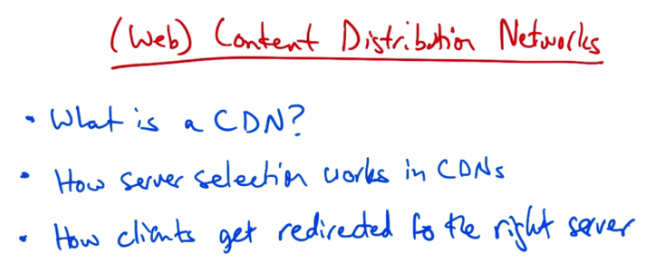 (Web) Content Distribution Networks
• What is a CDN?
• How server selection works in CDNs
• How clients get redirected to the right server